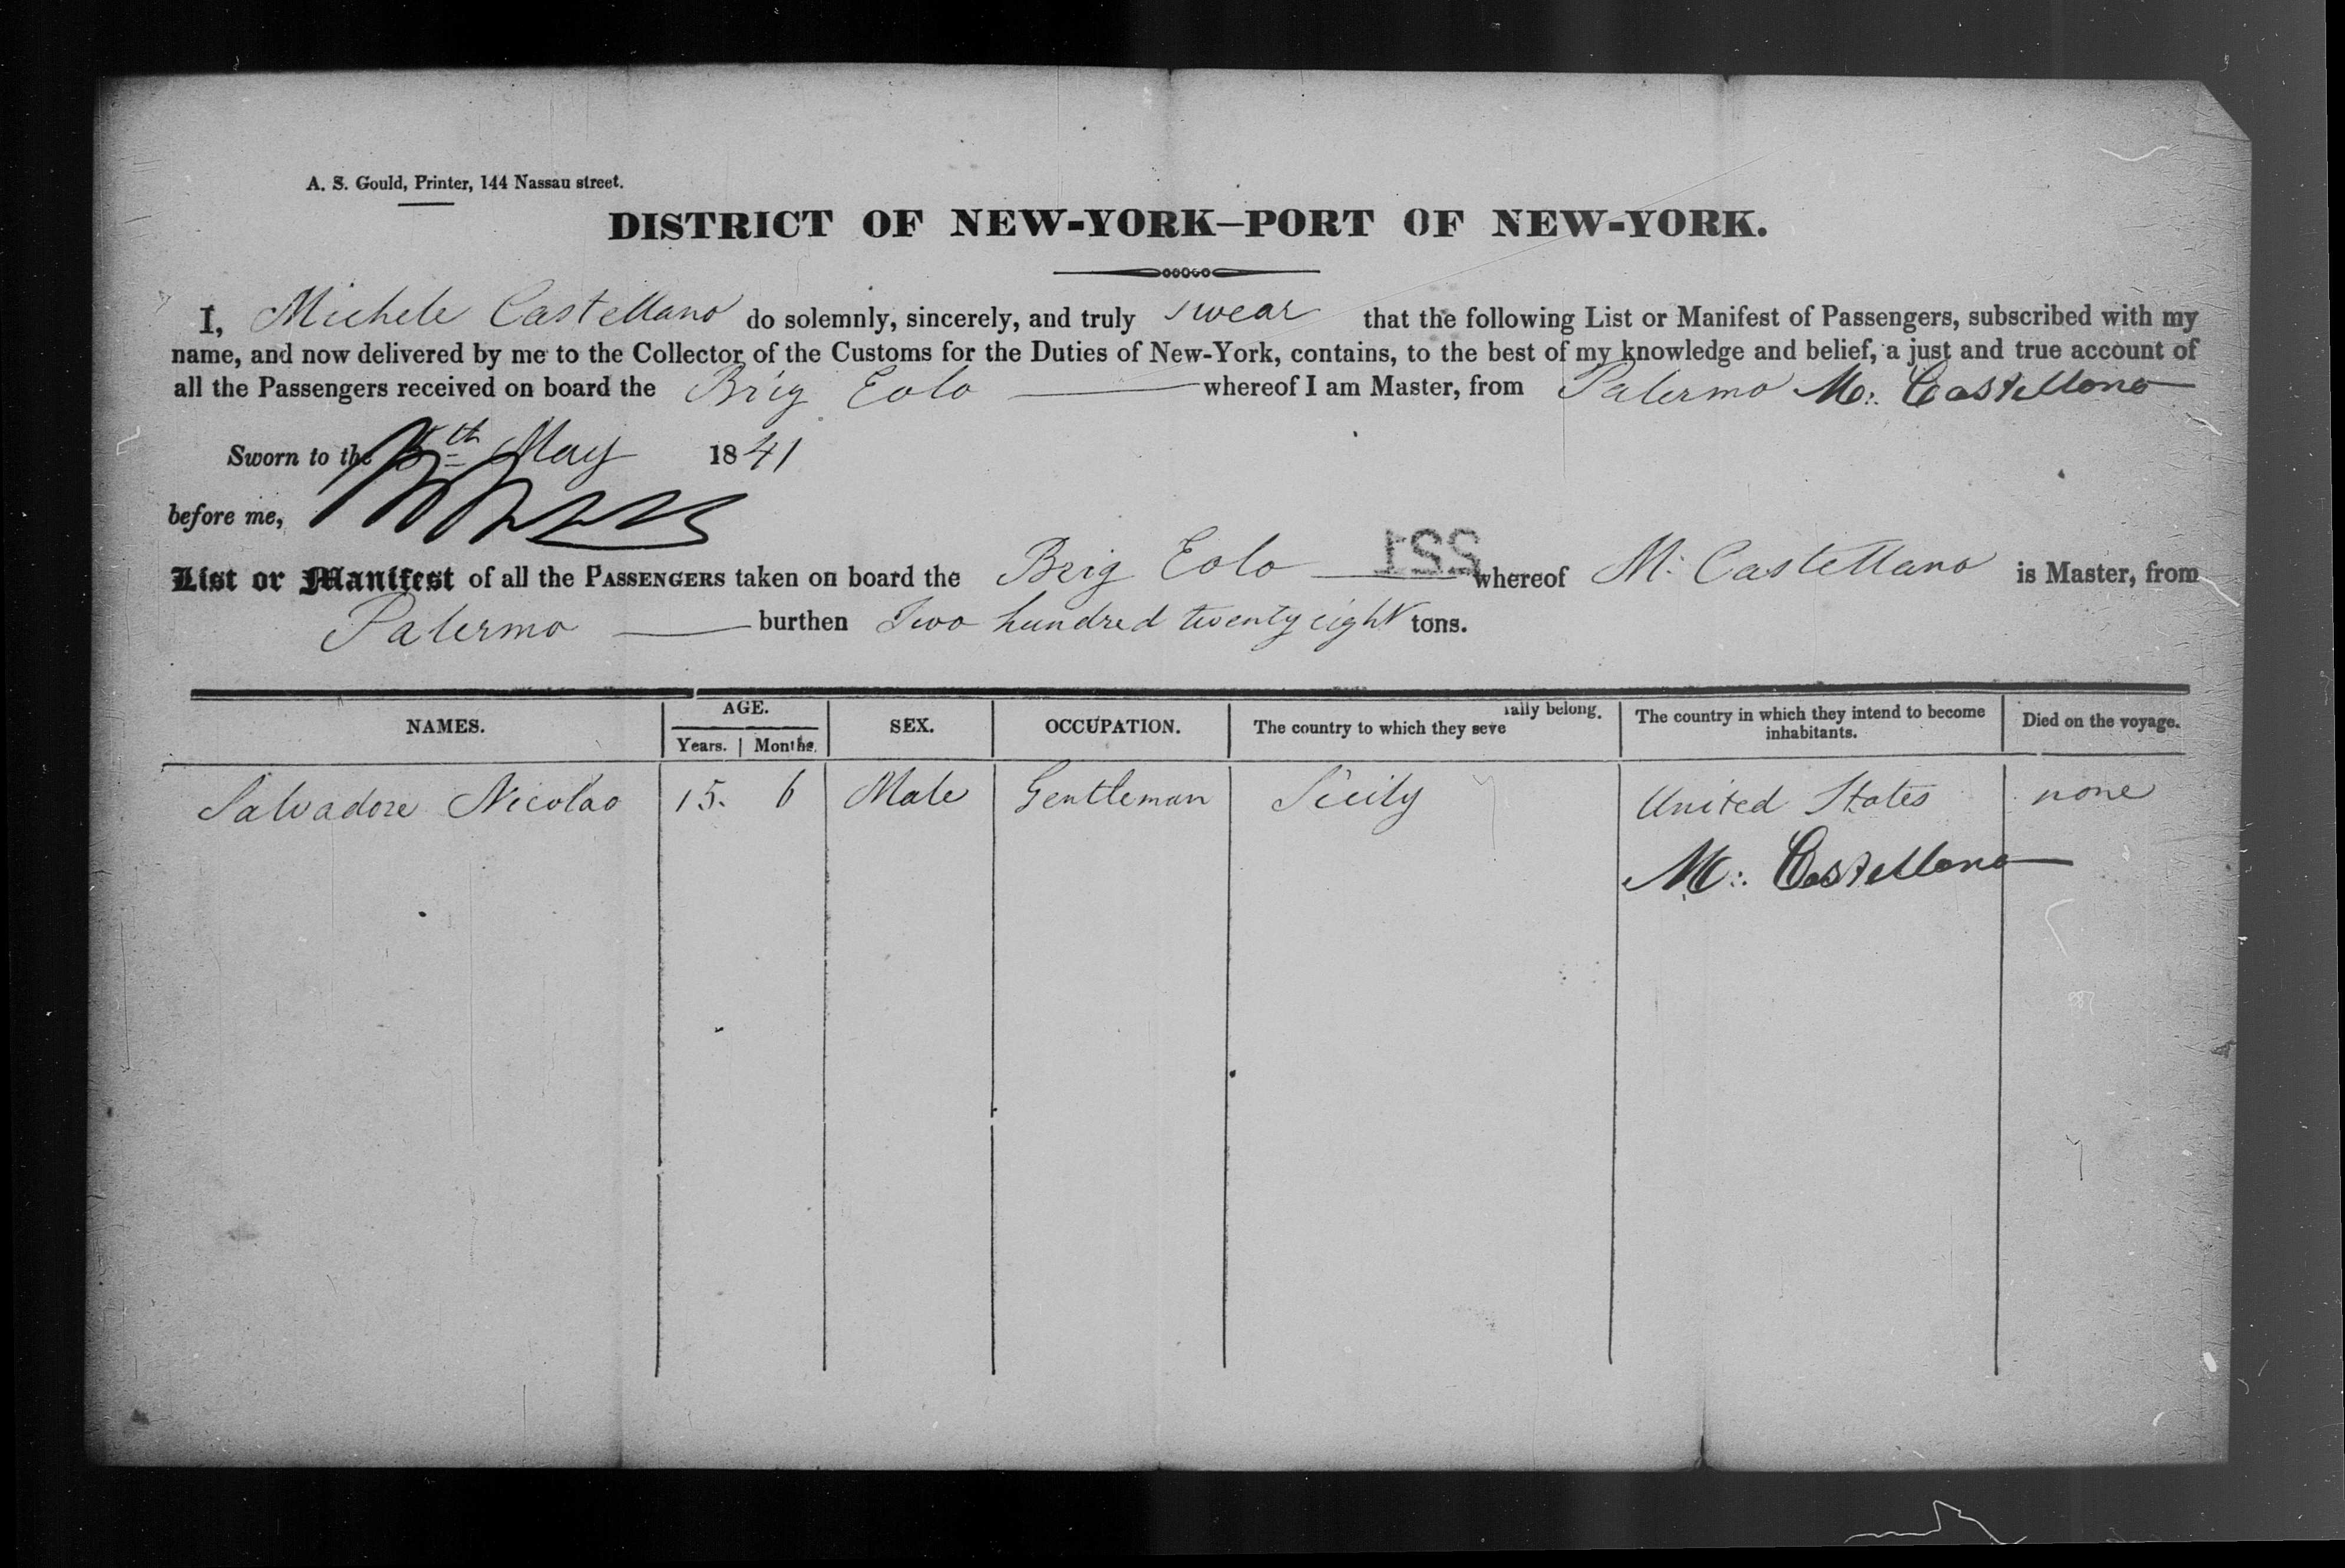 A. S. Gould, Printer, 144 Nassau street.
DISTRICT OF NEW-YORK—PORT OF NEW-YORK.
I, Michele Castellano do solemnly, sincerely, and truly swear that the following List or Manifest of Passengers, subscribed with my
name, and now delivered by me to the Collector of the Customs for the Duties of New-York, contains, to the best of my knowledge and belief, a just and true account of
all the Passengers received on board the Brig Eolo whereof I am Master, from Palermo M: Castellano
Sworn to the th May 1841
before me,
221
List or Manifest of all the PASSENGERS taken on board the Brig Eolo whereof M. Castellano is Master, from
Palermo burthen Two hundred twenty eight tons.
NAMES. AGE. Years. Months. SEX. OCCUPATION. The country to which they severally belong. The country in which they intend to become inhabitants. Died on the voyage.
Salvadore Nicolao 15. 6 Male Gentleman Sicily United States none
M: Castellano